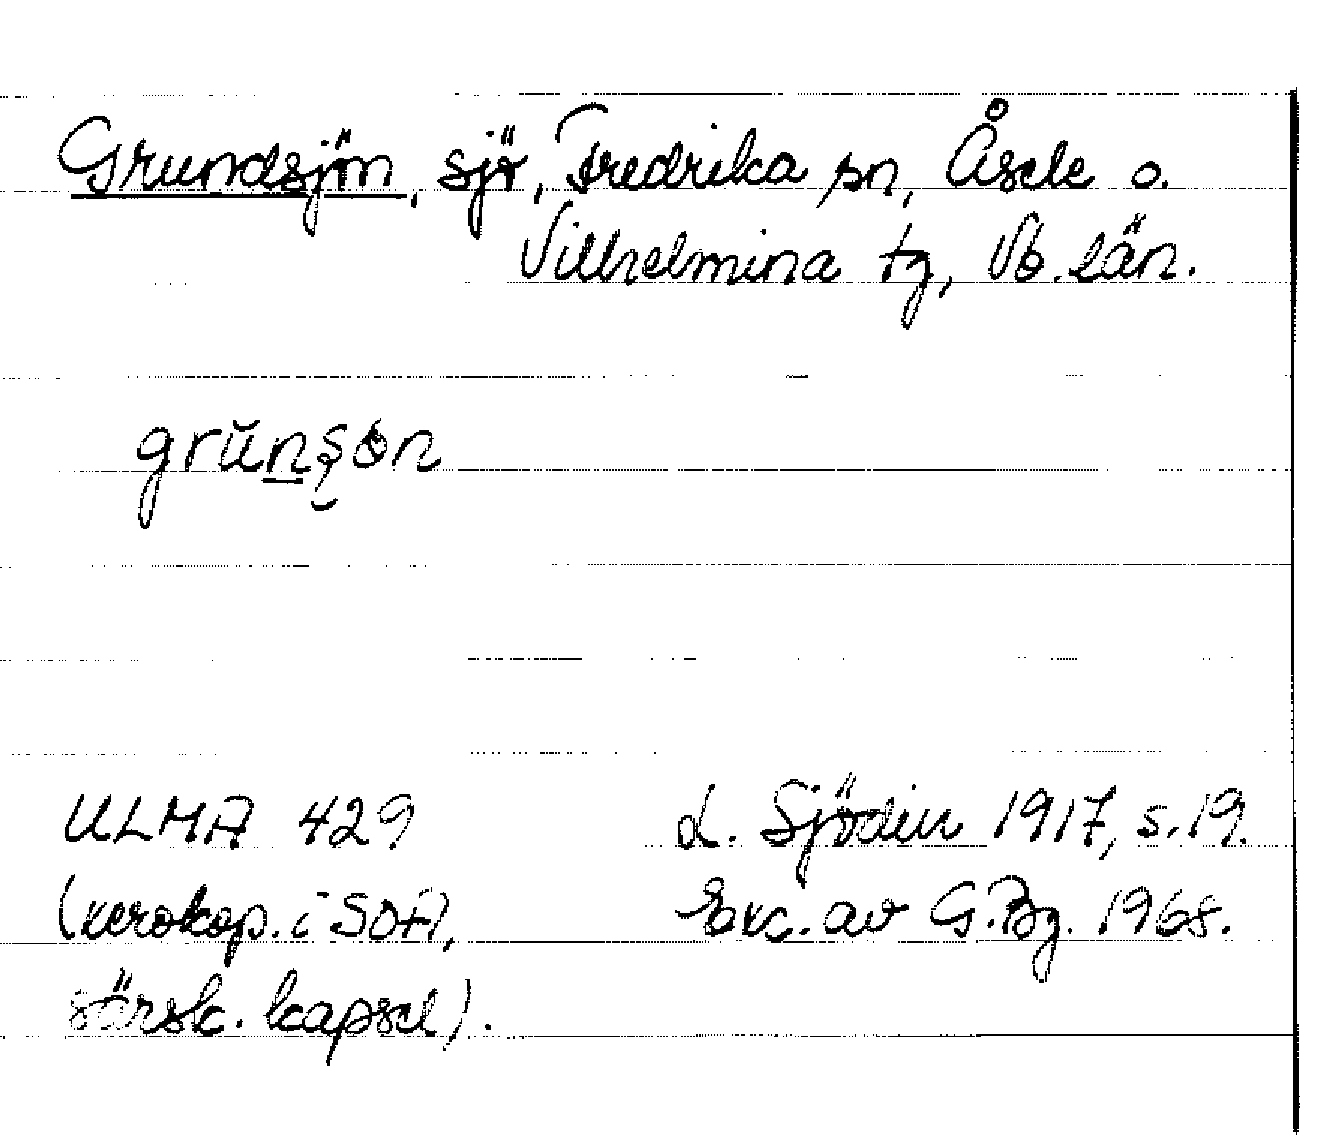 Grundsjön, sjö, Fredrika sn, Åsele o.
Vilhelmina tg, Vb. län.
grŭn̲ʂön
ULMA 429
(xerokop. i SOFI,
särsk. kapsel).
L. Sjödin 1917, s. 19.
Exc. av G. Bg. 1968.